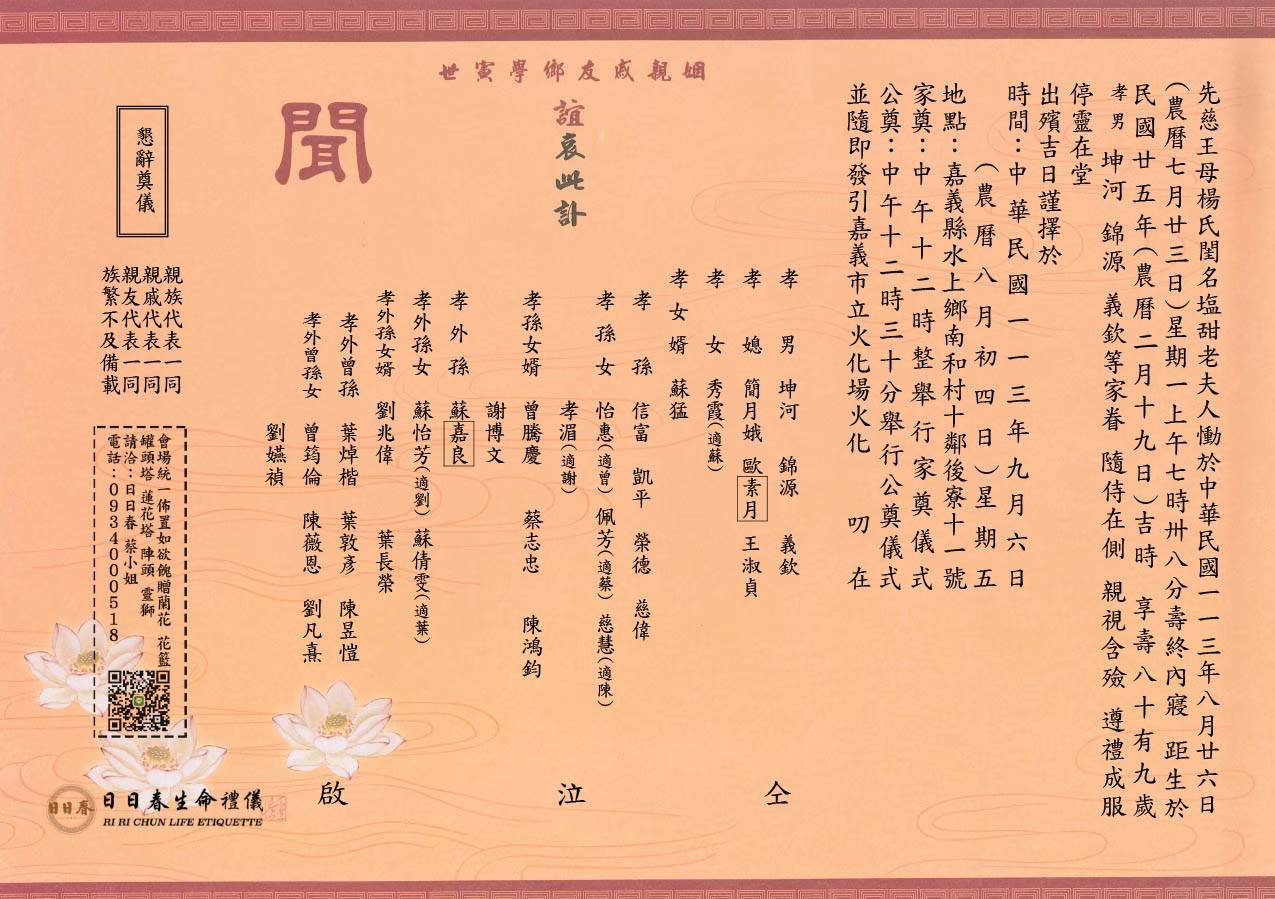 先慈王母楊氏閨名塩甜老夫人慟於中華民國一一三年八月廿六日
(農曆七月廿三日)星期一上午七時卅八分壽終內寢 距生於
民國廿五年(農曆二月十九日)吉時 享壽八十有九歲
孝男 坤河 錦源 義欽等家眷 隨侍在側 親視含殮 遵禮成服
停靈在堂
出殯吉日謹擇於
時間：中華民國一一三年九月六日
(農曆八月初四日)星期五
地點：嘉義縣水上鄉南和村十鄰後寮十一號
家奠：中午十二時整舉行家奠儀式
公奠：中午十二時三十分舉行公奠儀式
並隨即發引嘉義市立火化場火化 叨在
姻親戚友鄉學寅世
誼哀此訃
聞
孝男 坤河 錦源 義欽
孝媳 簡月娥 歐素月 王淑貞
孝女 秀霞(適蘇)
孝女婿 蘇猛
孝孫 信富 凱平 榮德 慈偉
孝孫女 怡惠(適曾) 佩芳(適蔡) 慈慧(適陳)
孝湄(適謝)
孝孫女婿 曾騰慶 蔡志忠 陳鴻鈞
謝博文
孝外孫 蘇嘉良
孝外孫女 蘇怡芳(適劉) 蘇倩雯(適葉)
孝外孫女婿 劉兆偉 葉長榮
孝外曾孫 葉焯楷 葉敦彥 陳昱愷
孝外曾孫女 曾筠倫 陳薇恩 劉凡熹
劉嬿禎
仝
泣
啟
懇辭奠儀
親族代表一同
親戚代表一同
親友代表一同
族繁不及備載
會場統一佈置如欲餽贈蘭花 花籃
罐頭塔 蓮花塔 陣頭 靈獅
請洽：日日春 蔡小姐
電話：0934000518
日日春
日日春生命禮儀
RI RI CHUN LIFE ETIQUETTE